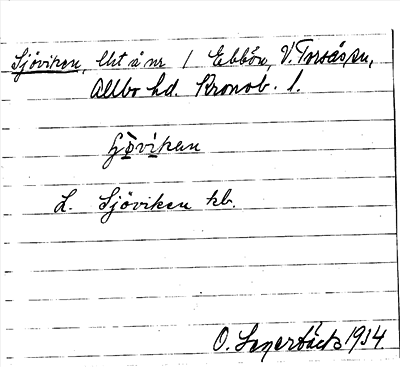 Sjöviken, lht å nr 1 Ebbön, V. Torsås sn,
Allbo hd. Kronob. l.
Sjöviken kb.
1934.